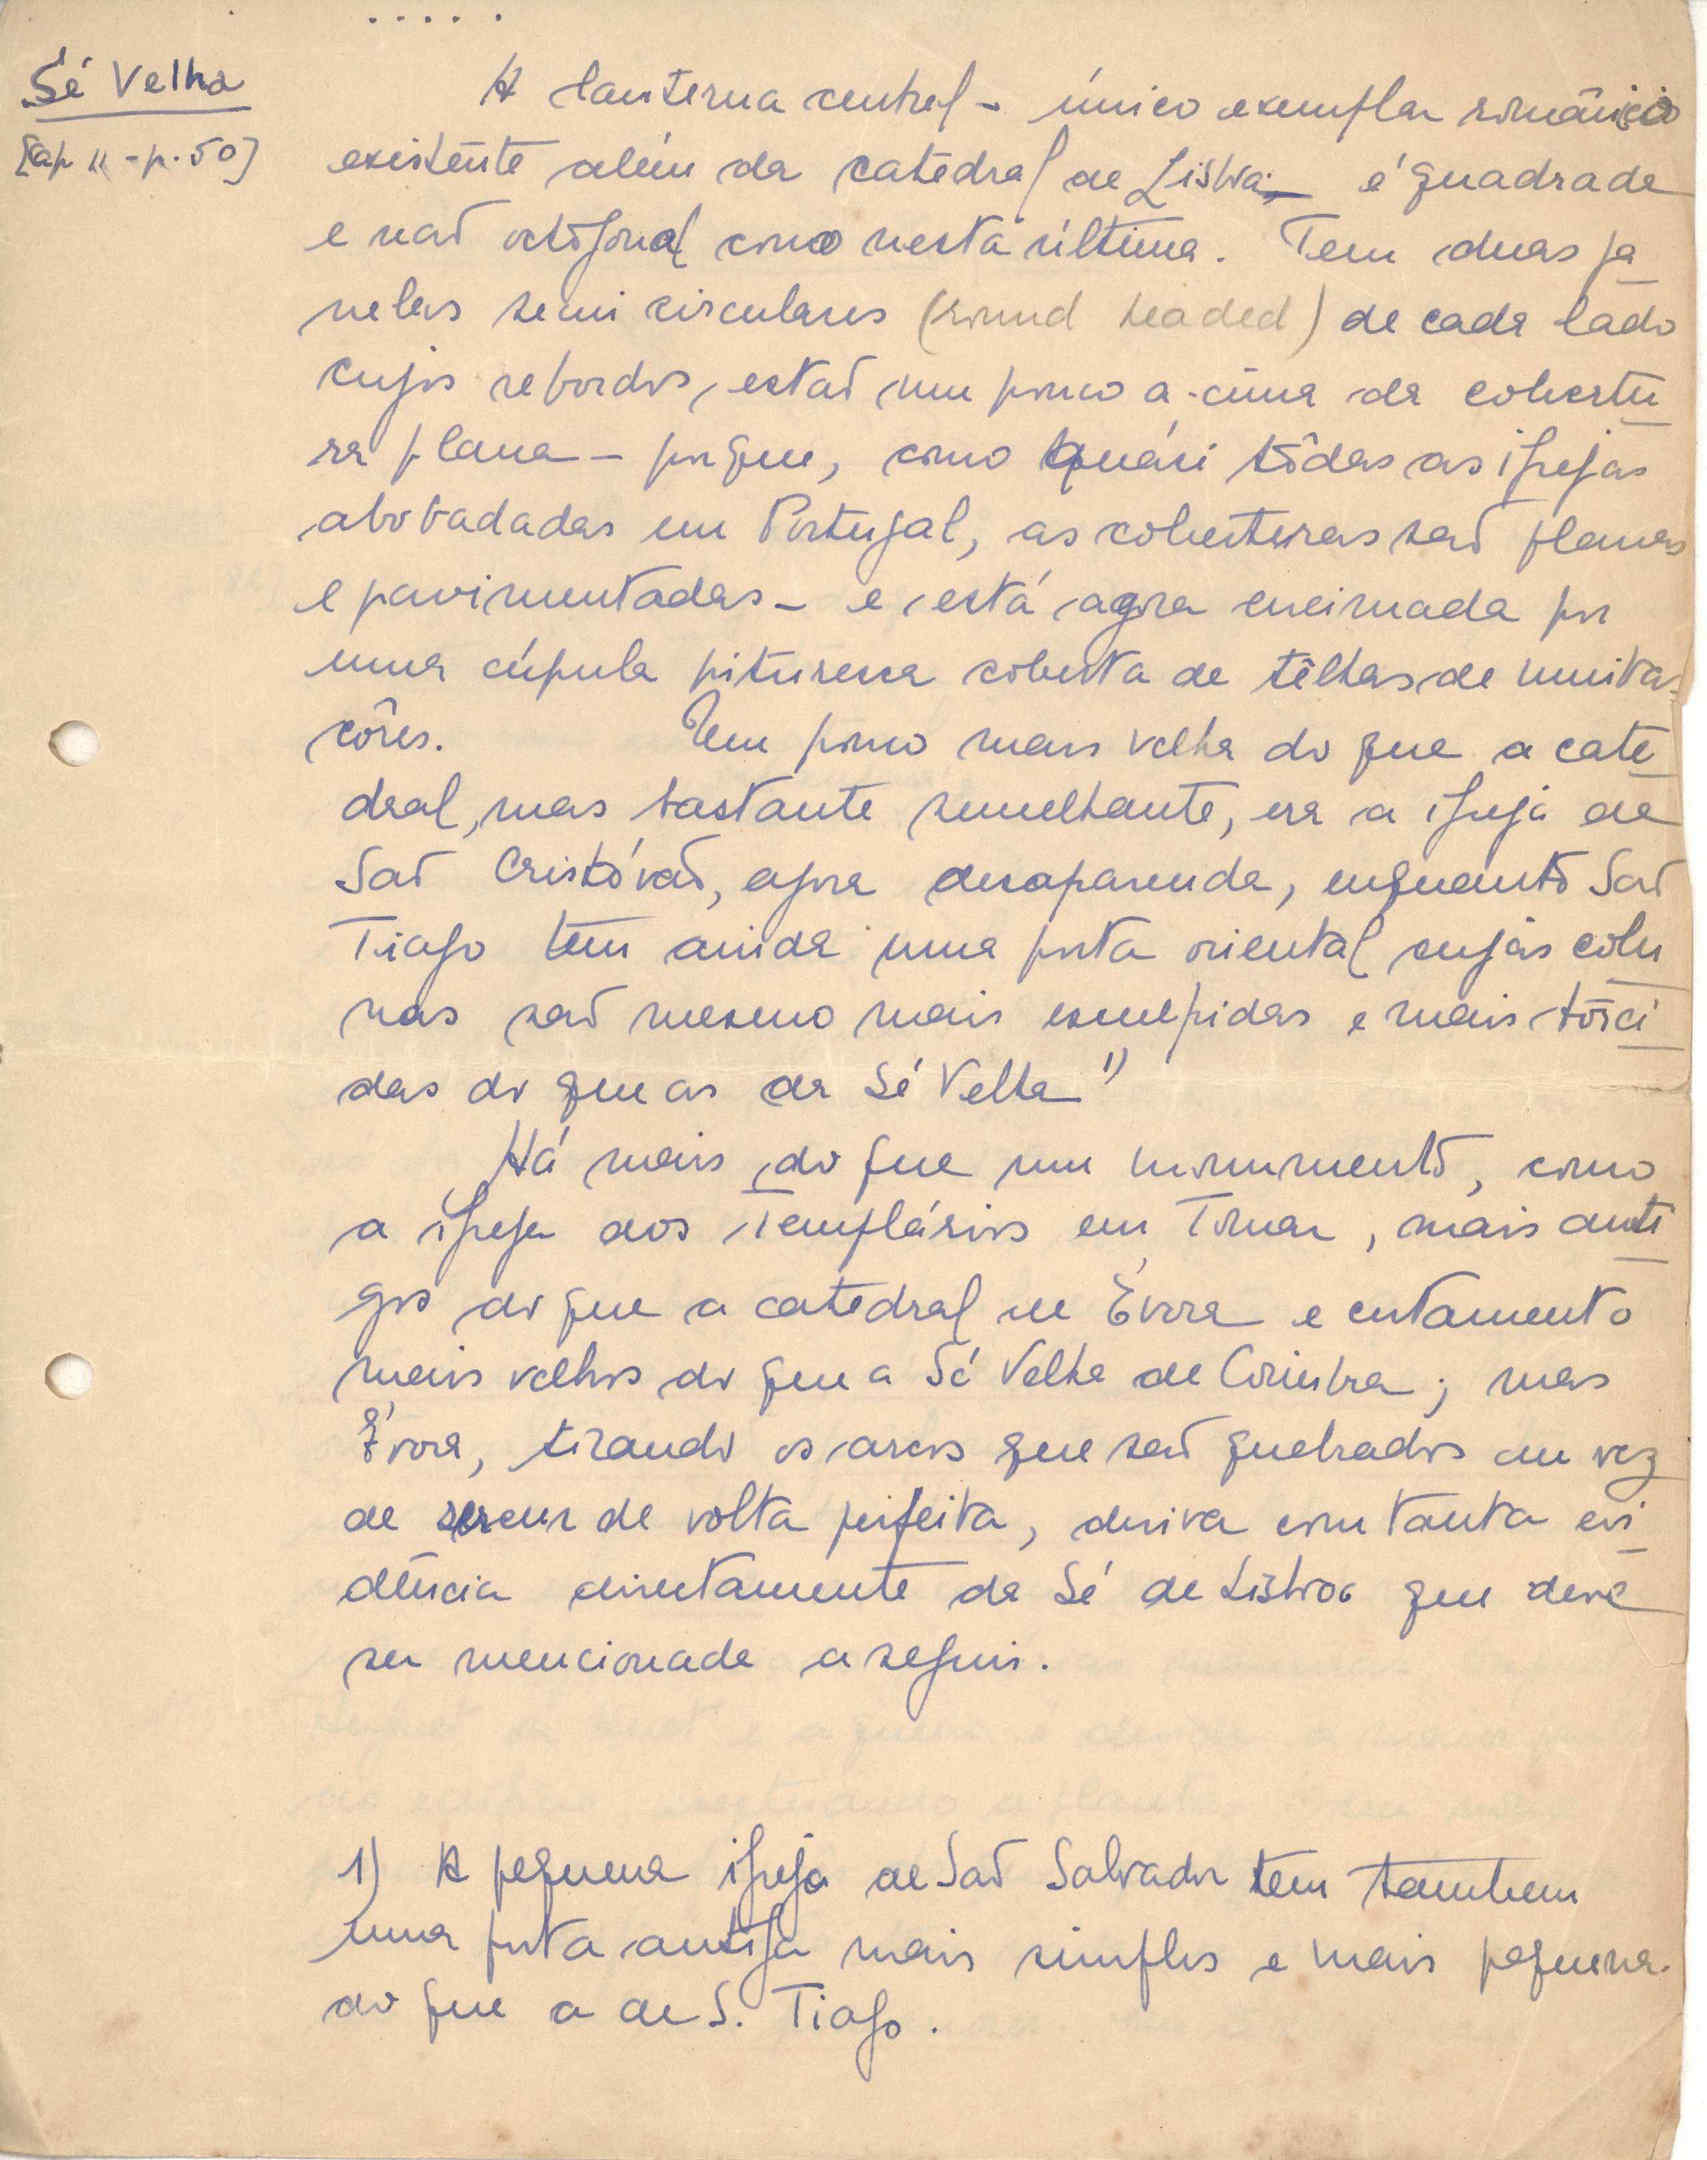 .....
Sé Velha
[Cap II - p. 50]
A lanterna central - único exemplar românico
existente além da catedral de Lisboa, é quadrada
e não octogonal como nesta última. Tem duas ja
nelas semi circulares (round headed) de cada lado
cujos rebordos, estão um pouco a-cima da cobertu
ra plana - porque, como quási tôdas as igrejas
abobadadas em Portugal, as coberturas são planas
e pavimentadas - e está agora encimada por
uma cúpula pituresca coberta de têlhas de muitas
côres. Um pouco mais velha do que a cate
dral, mas bastante semelhante, era a igreja de
São Cristóvão, agora desaparecida, enquanto São
Tiago tem ainda uma porta oriental cujas colu
nas são mesmo mais esculpidas e mais torci
das do que as da Sé Velha 1)
Há mais do que um monumento, como
a igreja dos Templários em Tomar, mais anti
gos do que a catedral de Évora e certamente
mais velhos do que a Sé Velha de Coimbra; mas
Évora, tirando os arcos que são quebrados em vez
de serem de volta perfeita, deriva com tanta evi
dência directamente da Sé de Lisboa que deve
ser mencionada a seguir.
1) A pequena igreja de São Salvador tem tambem
uma porta antiga mais simples e mais pequena
do que a de S. Tiago.